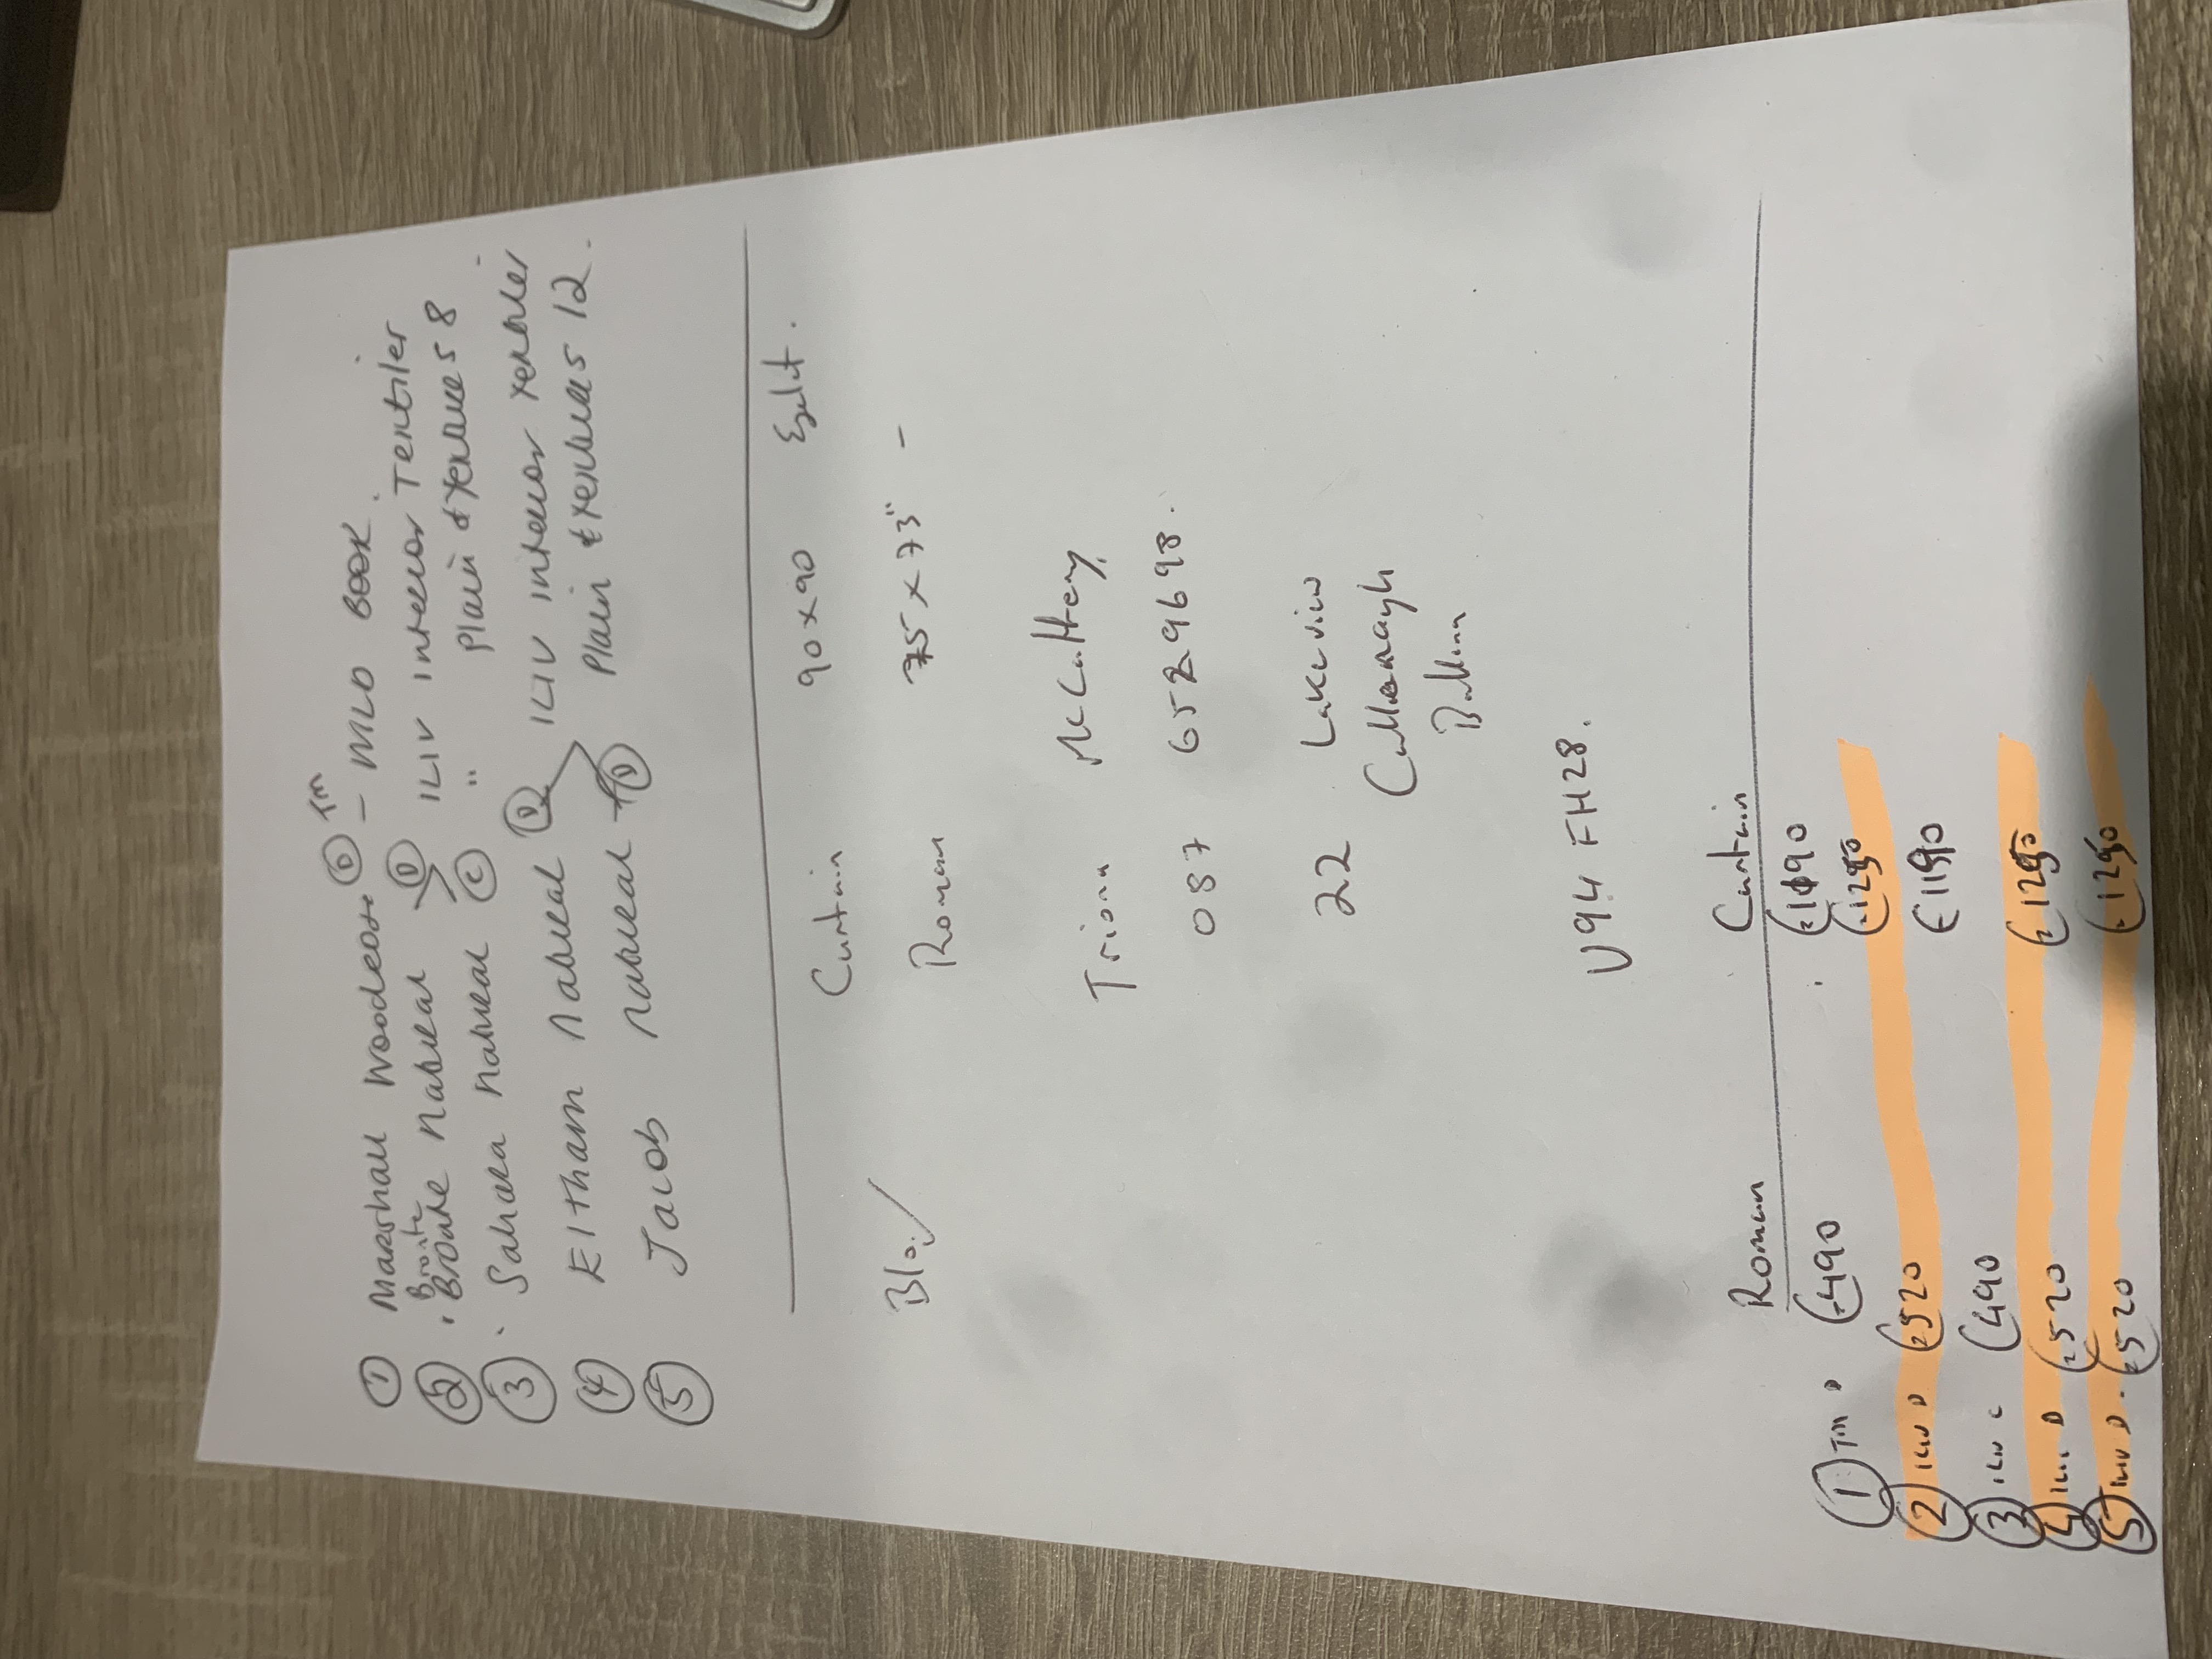 ① Marshall Woodrose Ⓓ TM - MLD BOOK.
Bronte
② Bronte Natural Ⓓ ILIV Interior Textiles
③ Sahara Natural Ⓒ " Plain Textures 8
④ Eltham Natural Ⓓ ILIV Interior Textiles
⑤ Jacob Natural Ⓓ Plain Textures 12.
Curtain 90 x 90 Eyelet.
Blo / Roman 75 x 73" -
Triona McCaffery
087 6529698.
22 Lakeview
Cullenagh
Ballina
V94 FH28.
Roman Curtain
① TM D €490 €1190
② ILIV D €520 €1250
③ ILIV C €490 €1190
④ ILIV D €520 €1250
⑤ ILIV D. €520 €1250